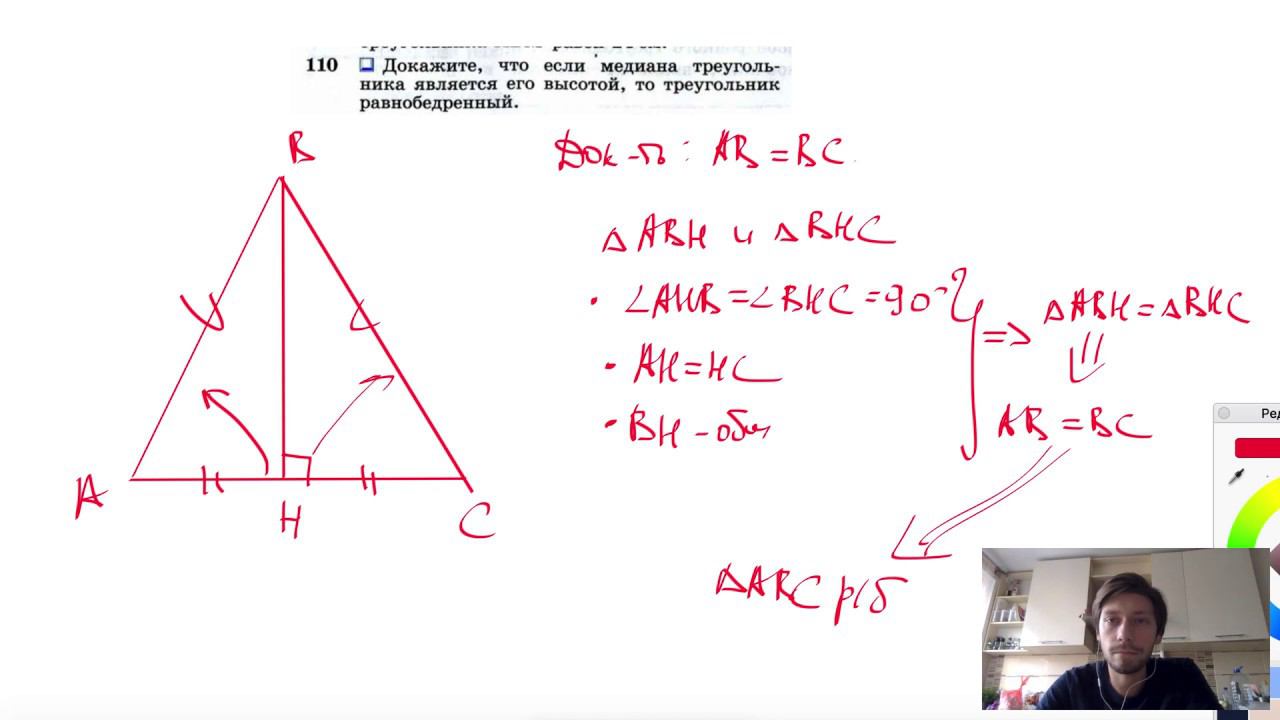 110 Докажите, что если медиана треуголь-
ника является его высотой, то треугольник
равнобедренный.
B
Док-ть: AB = BC
△ABH и △BHC
• ∠AHB = ∠BHC = 90°
• AH = HC
• BH - общ
=> △ABH = △BHC
AB = BC
A
H
C
△ABC р/б
Ред